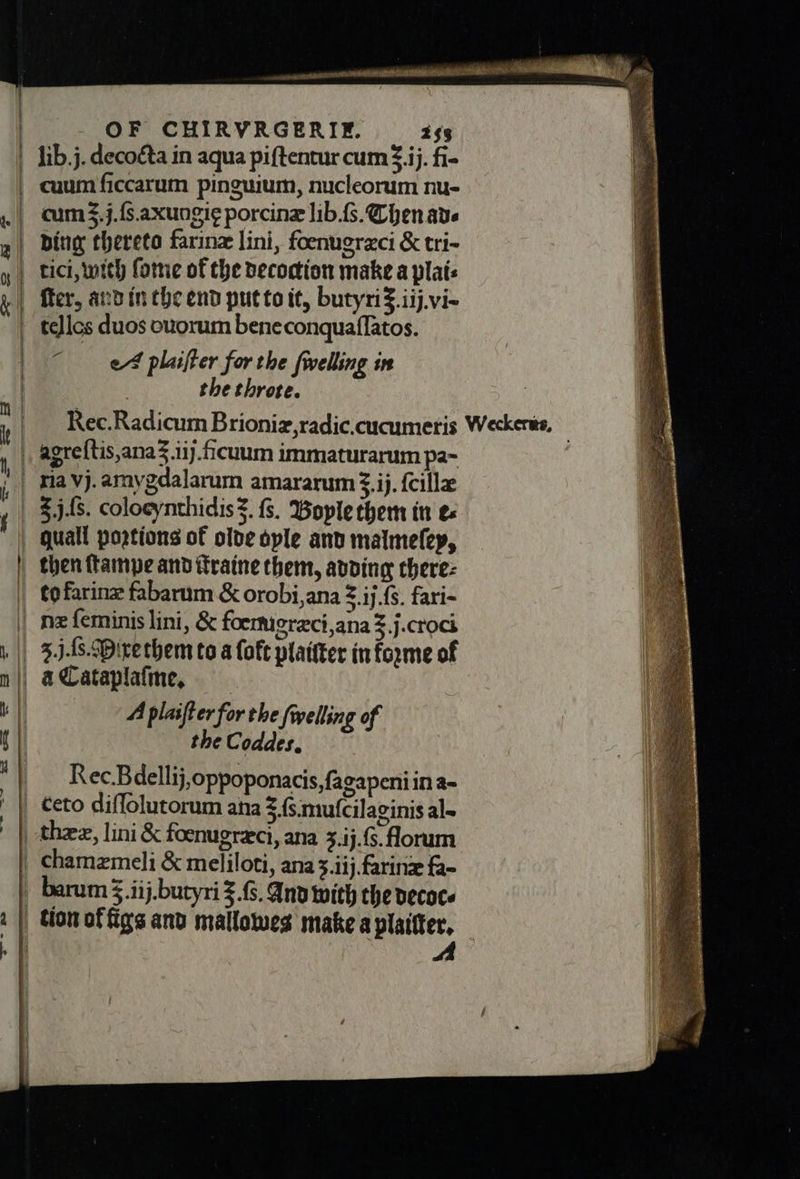 OF CHIRVRGERIE. 255
lib.j. decocta in aqua piſtentur cum ℥.ij. fi-
cuum ſiccarum pinguium, nucleorum nu-
cum ℥.j.ſs.axungie porcinæ lib.ſs. Then ad-
ding thereto farinæ lini, fœnugræci & tri-
tici, with ſome of the decoction make a plai-
ſter, and in the end put to it, butyri ℥.iij.vi-
tellos duos ouorum bene conquaſſatos.
A plaiſter for the ſwelling in
the throte.
Rec.Radicum Brioniæ,radic.cucumeris Weckerus,
agreſtis,ana ℥.iij.ficuum immaturarum pa-
ria vj. amygdalarum amararum ℥.ij. ſcillæ
℥.j.ſs. coloeynthidis ℥. ſs. Boyle them in e-
quall portions of olde oyle and malmeſey,
then ſtampe and ſtraine them, adding there-
to farinæ fabarum & orobi,ana ℥.ij.ſs. fari-
næ ſeminis lini, & foenugræci,ana ℥.j.croci
ʒ.j.ſs. Mixe them to a ſoft plaiſter in forme of
a Cataplaſme,
A plaiſter for the ſwelling of
the Coddes,
Rec.Bdellij,oppoponacis,ſagapeni in a-
ceto diſſolutorum ana ℥.ſs.muſcilaginis al-
thææ, lini & fœnugræci, ana ʒ.ij.ſs. florum
chamæmeli & meliloti, ana ʒ.iij.farinæ fa-
barum ℥.iij.butyri ℥.ſs. And with the decoc-
tion of figs and mallowes make a plaiſter,
A